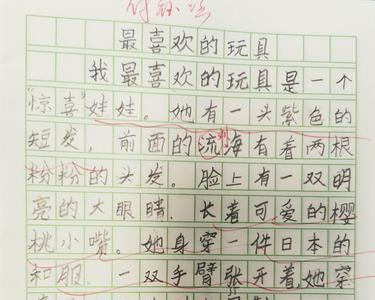 最喜欢的玩具
我最喜欢的玩具是一个
“惊喜”娃娃。她有一头紫色的
短发，前面的流海有着两根
刘
粉粉的头发。脸上有一双明
亮的大眼睛.长着可爱的樱
桃小嘴。她身穿一件日本的
和服.一双手臂张开着她穿